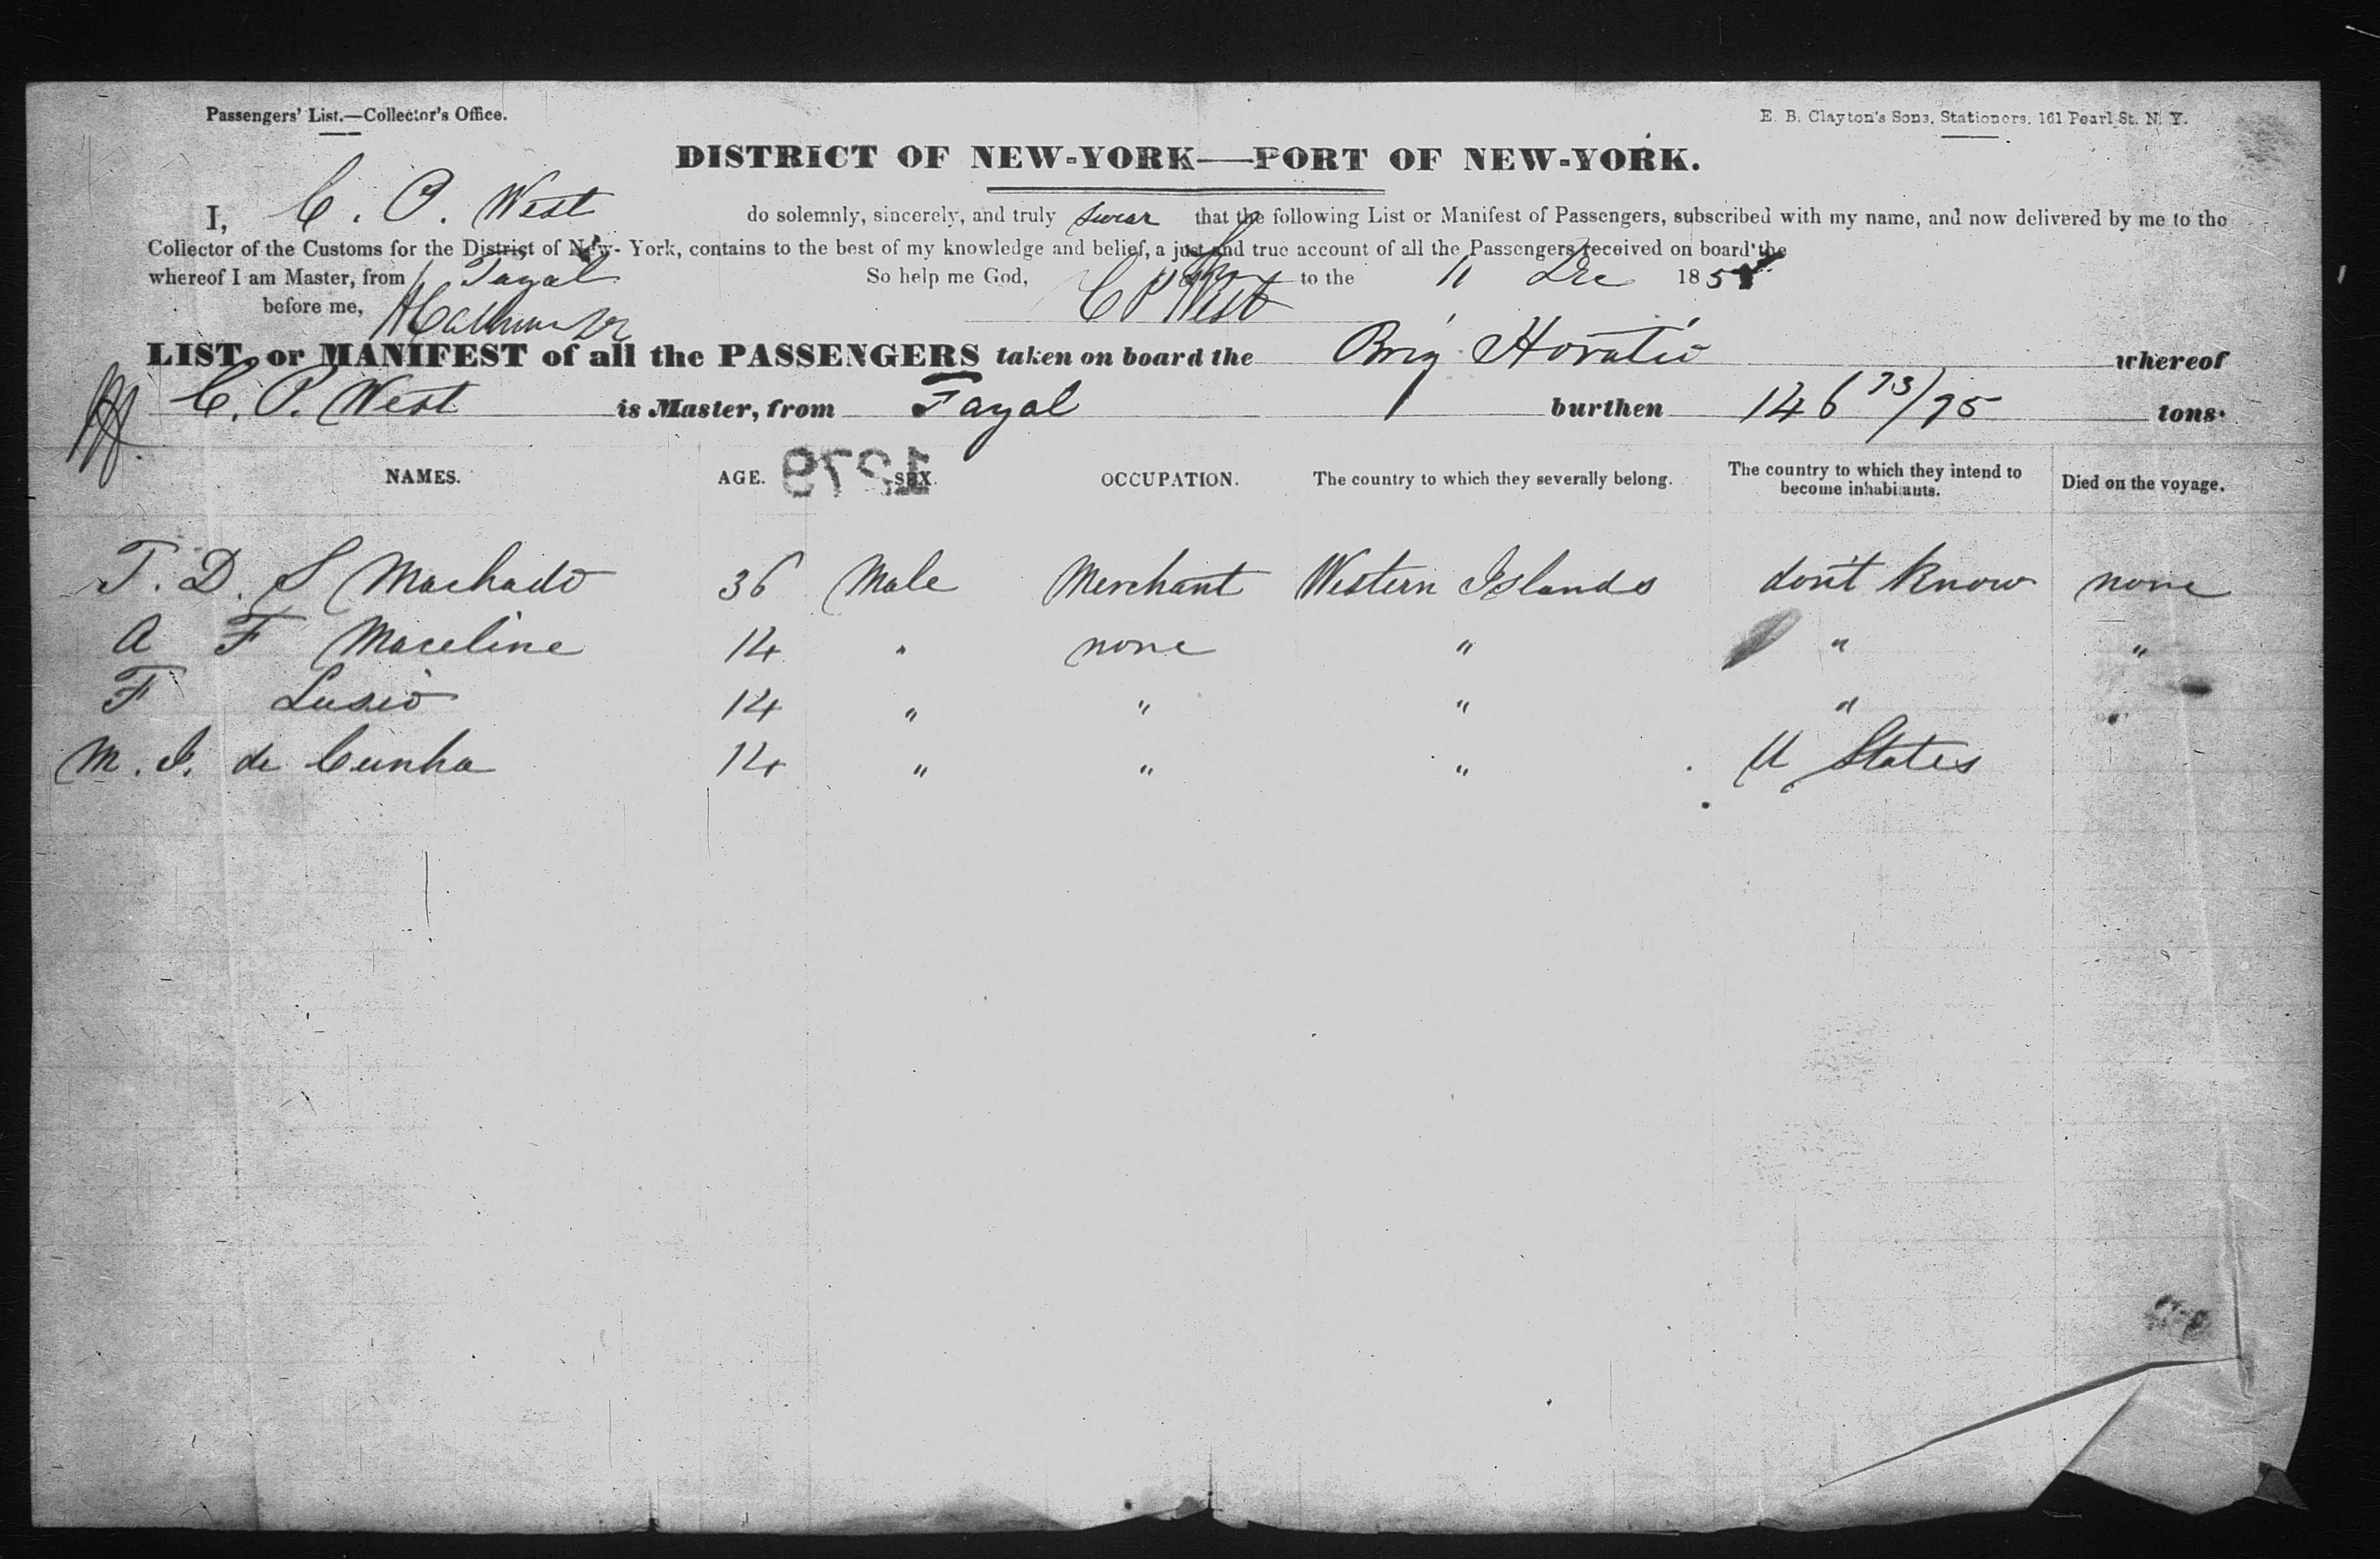 Passengers' List.—Collector's Office.
E. B. Clayton's Sons, Stationers, 161 Pearl St. N. Y.
DISTRICT OF NEW-YORK—PORT OF NEW-YORK.
I, C. P. West do solemnly, sincerely, and truly swear that the following List or Manifest of Passengers, subscribed with my name, and now delivered by me to the
Collector of the Customs for the District of New-York, contains to the best of my knowledge and belief, a just and true account of all the Passengers received on board the
whereof I am Master, from Fayal So help me God, to the 11 Dec 185
before me, C P West
LIST or MANIFEST of all the PASSENGERS taken on board the Brig Horatio whereof
C. P. West is Master, from Fayal burthen 146 73/95 tons.
1279
NAMES. AGE. SEX. OCCUPATION. The country to which they severally belong. The country to which they intend to become inhabitants. Died on the voyage.
T. D. S Machado 36 Male Merchant Western Islands don't know none
A F Maceline 14 " none " " "
F Lusio 14 " " " " "
M. I. de Cunha 14 " " " U States